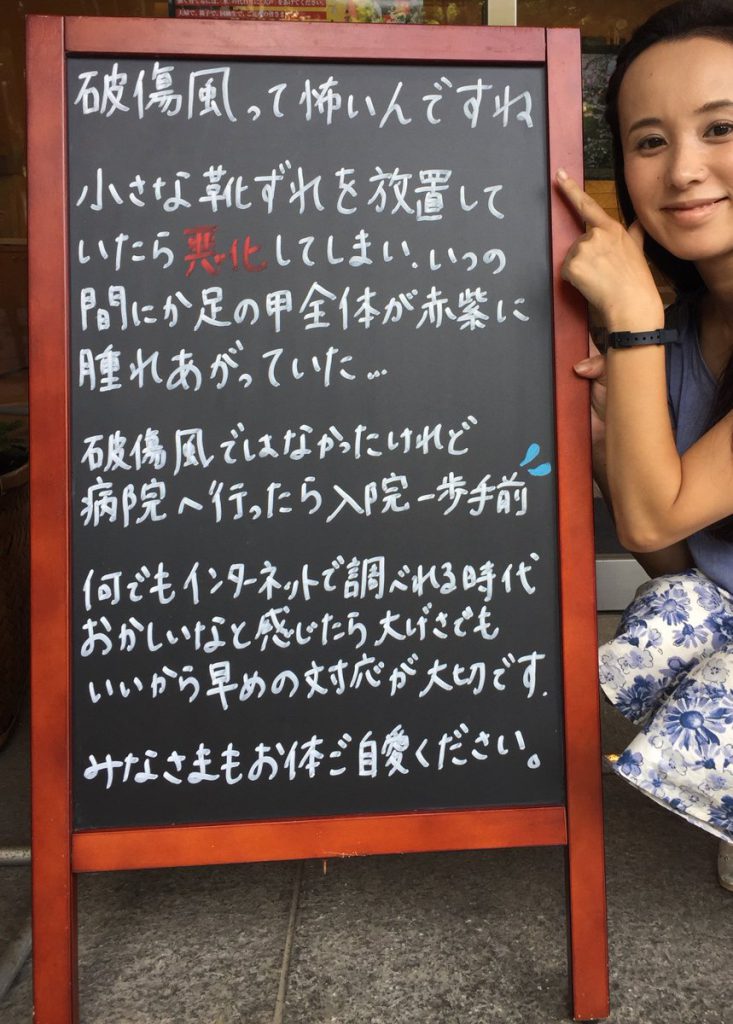 破傷風って怖いんですね
小さな靴ずれを放置して
いたら悪化してしまい.いつの
間にか足の甲全体が赤紫に
腫れあがっていた…
破傷風ではなかったけれど
病院へ行ったら入院一歩手前
何でもインターネットで調べれる時代
おかしいなと感じたら大げさでも
いいから早めの対応が大切です.
みなさまもお体ご自愛ください。